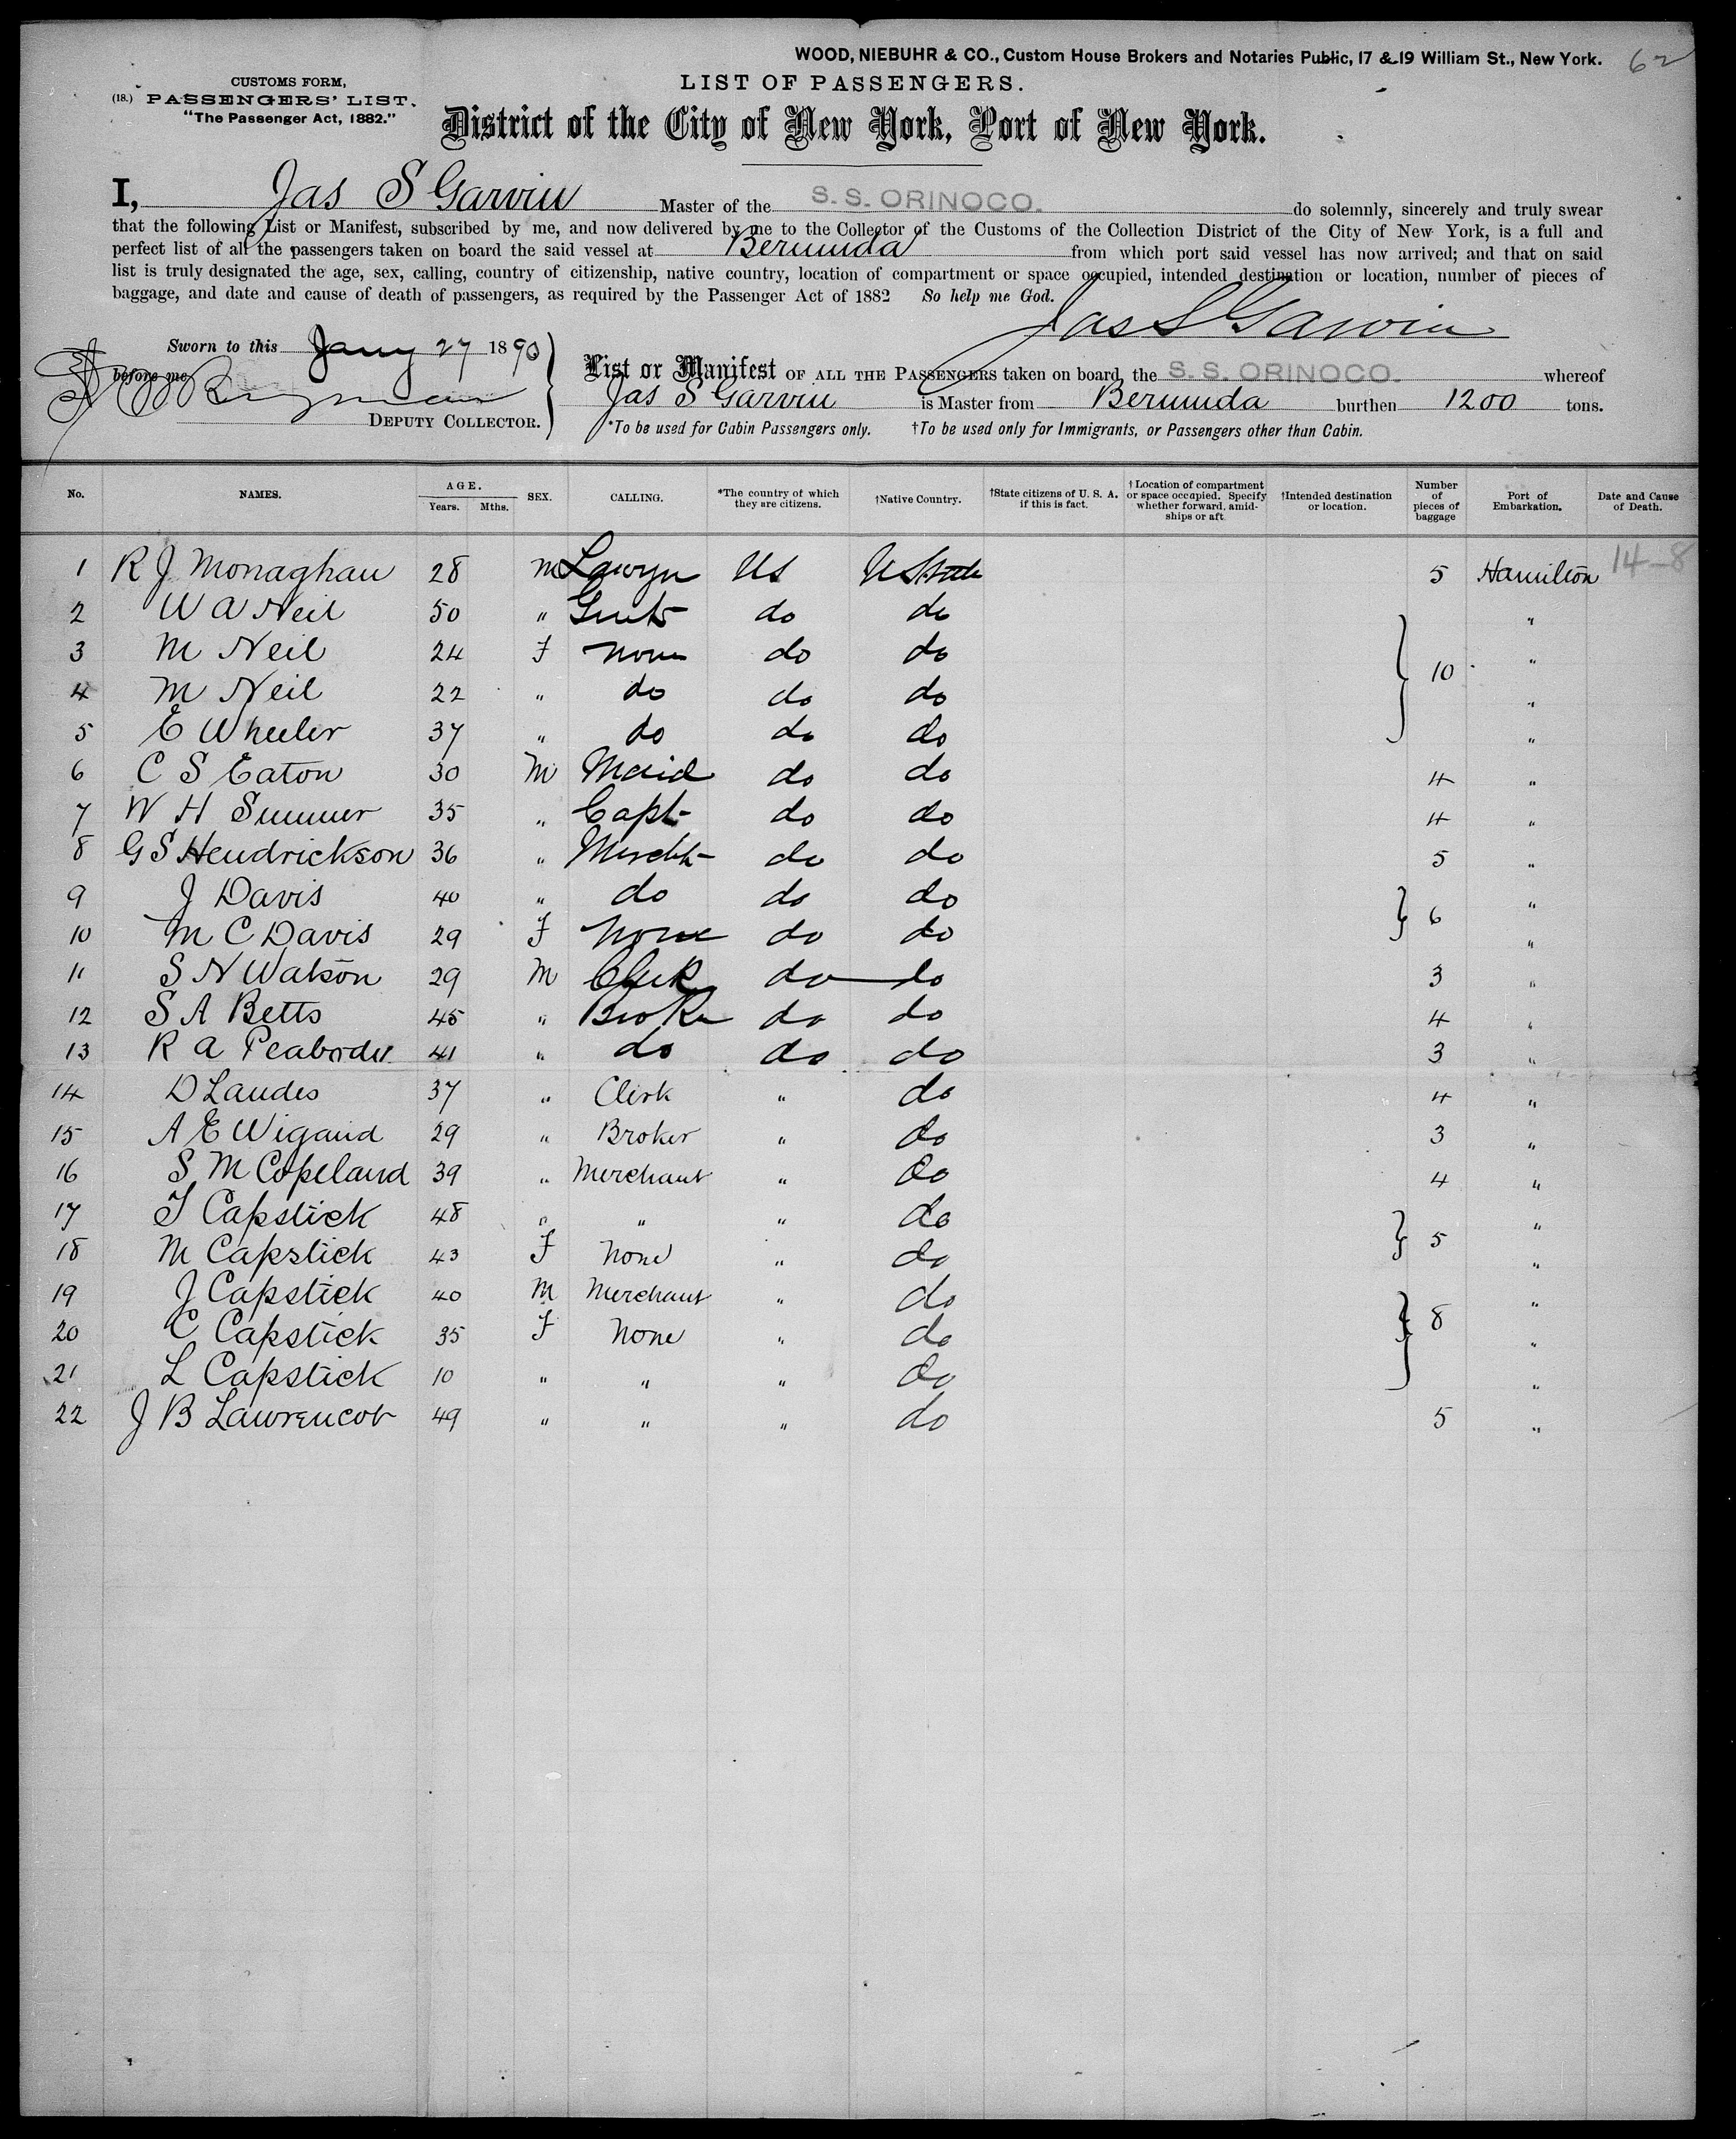 WOOD, NIEBUHR & CO., Custom House Brokers and Notaries Public, 17 & 19 William St., New York. 62
CUSTOMS FORM,
(18.) PASSENGERS' LIST.
"The Passenger Act, 1882."
LIST OF PASSENGERS.
District of the City of New York, Port of New York.
I, Jas S Garvin Master of the S. S. ORINOCO. do solemnly, sincerely and truly swear
that the following List or Manifest, subscribed by me, and now delivered by me to the Collector of the Customs of the Collection District of the City of New York, is a full and
perfect list of all the passengers taken on board the said vessel at Bermuda from which port said vessel has now arrived; and that on said
list is truly designated the age, sex, calling, country of citizenship, native country, location of compartment or space occupied, intended destination or location, number of pieces of
baggage, and date and cause of death of passengers, as required by the Passenger Act of 1882 So help me God.
Jas S Garvin
Sworn to this Jany 27 1890
before me
DEPUTY COLLECTOR.
List or Manifest OF ALL THE PASSENGERS taken on board the S. S. ORINOCO. whereof
Jas S Garvin is Master from Bermuda burthen 1200 tons.
*To be used for Cabin Passengers only. †To be used only for Immigrants, or Passengers other than Cabin.
No. NAMES. AGE. Years. Mths. SEX. CALLING. *The country of which they are citizens. †Native Country. †State citizens of U. S. A. if this is fact. †Location of compartment or space occupied. Specify whether forward, amidships or aft. †Intended destination or location. Number of pieces of baggage Port of Embarkation. Date and Cause of Death.
1 R J Monaghan 28 M Lawyer US U State 5 Hamilton 14-8
2 W A Neil 50 " Gents do do "
3 M Neil 24 F none do do 10 "
4 M Neil 22 " do do do "
5 E Wheeler 37 " do do do "
6 C S Eaton 30 M Maid do do 4 "
7 W H Sumner 35 " Capt do do 4 "
8 G S Hendrickson 36 " Mercht do do 5 "
9 J Davis 40 " do do do 6 "
10 M C Davis 29 F None do do "
11 S N Watson 29 M Clerk do do 3 "
12 S A Betts 45 " Broker do do 4 "
13 R A Peabody 41 " do do do 3 "
14 D Landes 37 " Clerk " do 4 "
15 A E Wigand 29 " Broker " do 3 "
16 S M Copeland 39 " Merchant " do 4 "
17 T Capstick 48 " " " do 5 "
18 M Capstick 43 F None " do "
19 J Capstick 40 M Merchant " do 8 "
20 C Capstick 35 F None " do "
21 L Capstick 10 " " " do "
22 J B 49 " " " do 5 "